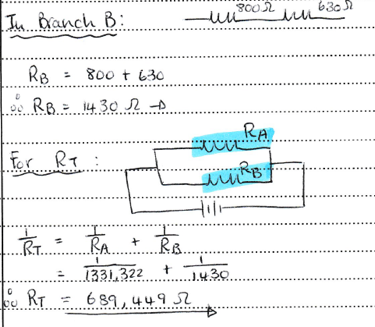 In Branch B: 800Ω 630Ω
RB = 800 + 630
∴ RB = 1430 Ω →
For RT :
RA
RB
1/RT = 1/RA + 1/RB
= 1/1331,322 + 1/1430
∴ RT = 689,449 Ω